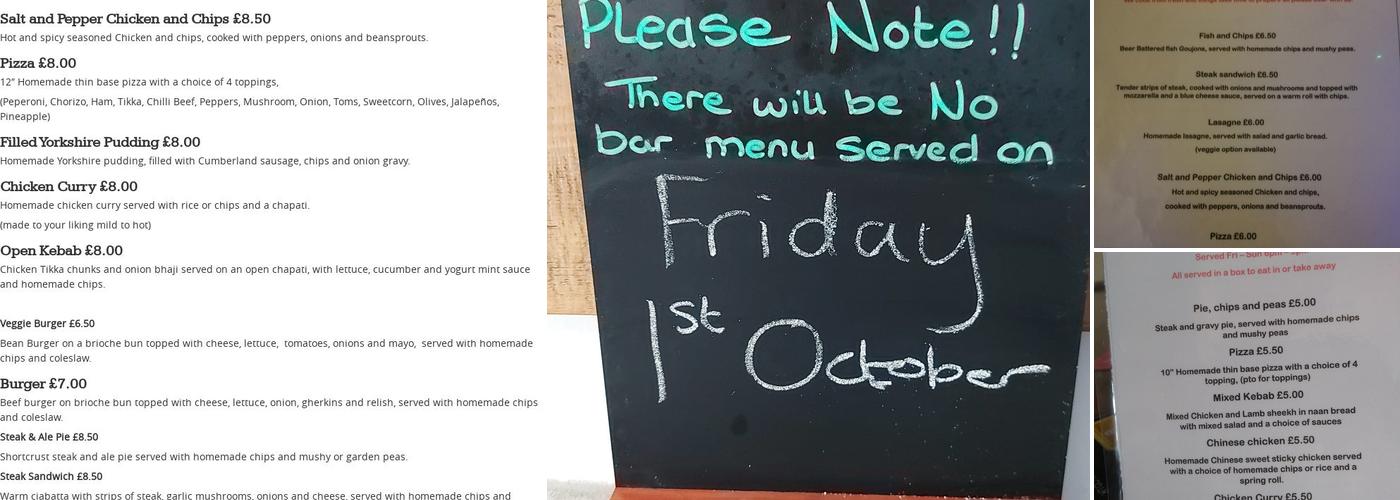 Salt and Pepper Chicken and Chips £8.50
Hot and spicy seasoned Chicken and chips, cooked with peppers, onions and beansprouts.
Pizza £8.00
12" Homemade thin base pizza with a choice of 4 toppings,
(Peperoni, Chorizo, Ham, Tikka, Chilli Beef, Peppers, Mushroom, Onion, Toms, Sweetcorn, Olives, Jalapeños,
Pineapple)
Filled Yorkshire Pudding £8.00
Homemade Yorkshire pudding, filled with Cumberland sausage, chips and onion gravy.
Chicken Curry £8.00
Homemade chicken curry served with rice or chips and a chapati.
(made to your liking mild to hot)
Open Kebab £8.00
Chicken Tikka chunks and onion bhaji served on an open chapati, with lettuce, cucumber and yogurt mint sauce
and homemade chips.
Veggie Burger £6.50
Bean Burger on a brioche bun topped with cheese, lettuce, tomatoes, onions and mayo, served with homemade
chips and coleslaw.
Burger £7.00
Beef burger on brioche bun topped with cheese, lettuce, onion, gherkins and relish, served with homemade chips
and coleslaw.
Steak & Ale Pie £8.50
Shortcrust steak and ale pie served with homemade chips and mushy or garden peas.
Steak Sandwich £8.50
Warm ciabatta with strips of steak, garlic mushrooms, onions and cheese, served with homemade chips and
Please Note!!
There will be No
bar menu served on
Friday
1st October
Fish and Chips £6.50
Beer Battered fish Goujons, served with homemade chips and mushy peas.
Steak sandwich £6.50
Tender strips of steak, cooked with onions and mushrooms and topped with
mozzarella and a blue cheese sauce, served on a warm roll with chips.
Lasagne £6.00
Homemade lasagne, served with salad and garlic bread.
(veggie option available)
Salt and Pepper Chicken and Chips £6.00
Hot and spicy seasoned Chicken and chips,
cooked with peppers, onions and beansprouts.
Pizza £6.00
Served Fri – Sun
All served in a box to eat in or take away
Pie, chips and peas £5.00
Steak and gravy pie, served with homemade chips
and mushy peas
Pizza £5.50
10" Homemade thin base pizza with a choice of 4
topping, (pto for toppings)
Mixed Kebab £5.00
Mixed Chicken and Lamb sheekh in naan bread
with mixed salad and a choice of sauces
Chinese chicken £5.50
Homemade Chinese sweet sticky chicken served
with a choice of homemade chips or rice and a
spring roll.
Chicken Curry £5.50